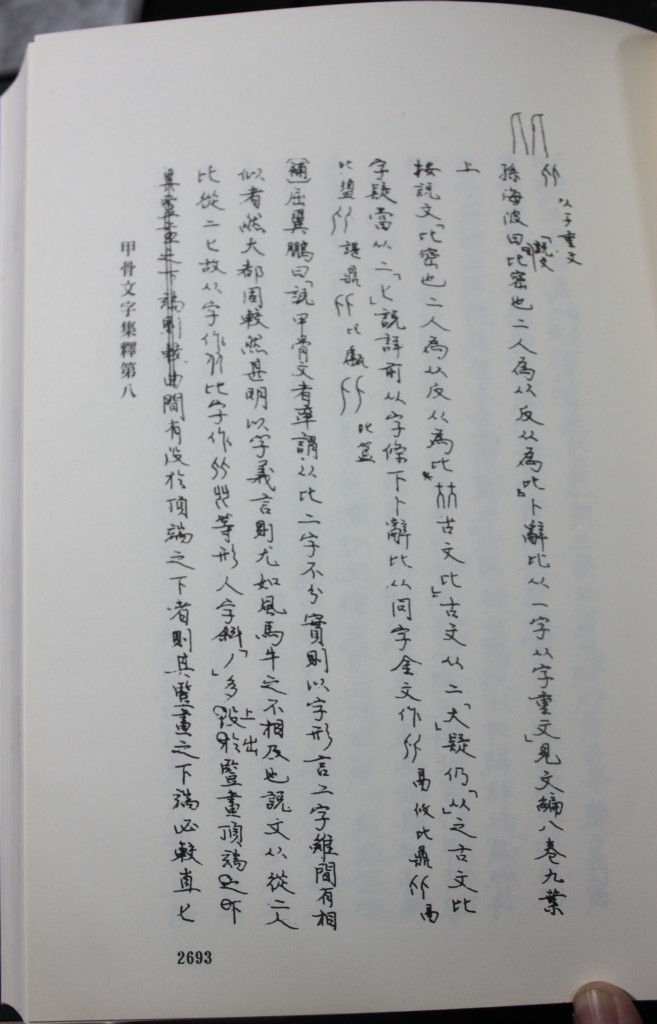 以子重文
孫海波曰「說文比密也二人為从反从為比」卜辭比从一字从字重文」見文編八卷九葉
上
按說文「比密也二人為从反从為比古文比」古文从二「大」疑仍「从」之古文比
字疑當从二「匕」說詳前从字條下卜辭比从同字金文作 鬲攸比鼎 鬲
比盨 諶鼎 比甗 比簋
〔補〕屈翼鵬曰「說甲骨文者率謂从比二字不分實則以字形言二字雖間有相
似者然大都固較然甚明以字義言則尤如風馬牛之不相及也說文从從二人
比從二匕故从字作 比字作 等形人字斜「丿」多上出於豎畫頂端之
間有沒於頂端之下者則其豎畫之下端必較直匕
甲骨文字集釋第八
2693